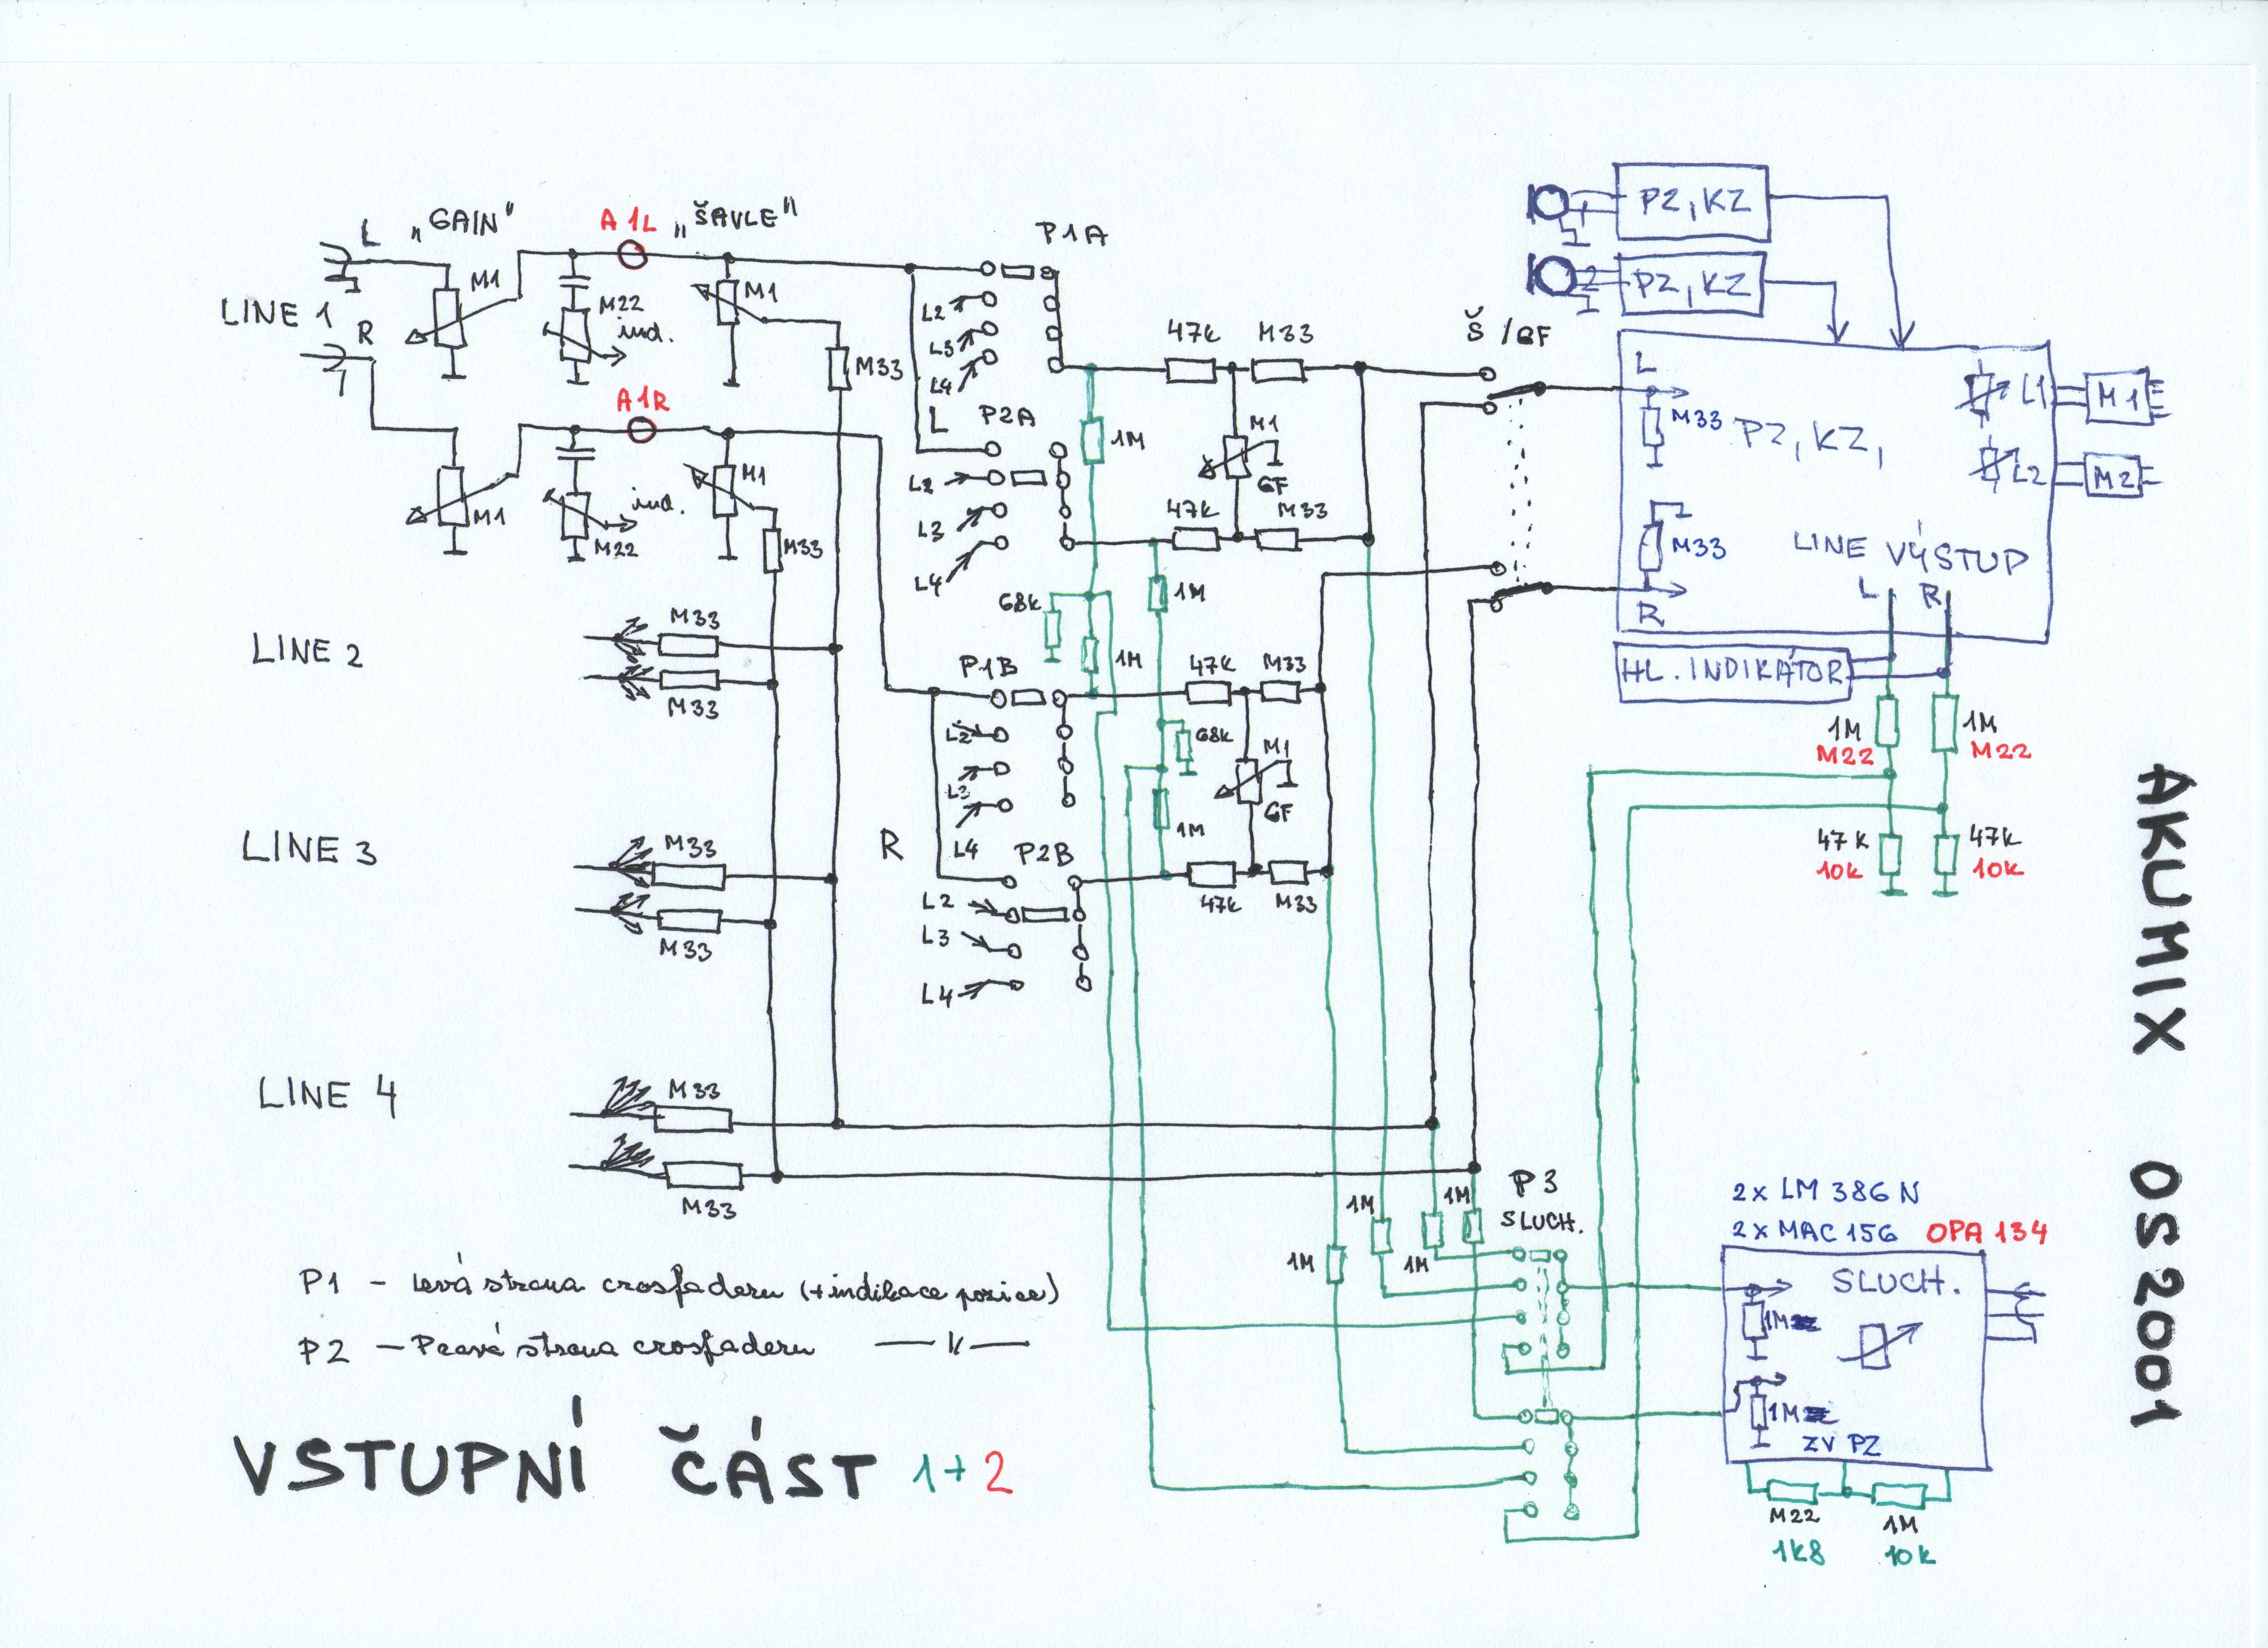 L „GAIN" A1L „ŠAVLE"
P1A
LINE 1
M1
M22
ind.
M1
M33
R
A1R
M1
M22
ind.
M1
M33
L2
L3
L4
L
P2A
L2
L3
L4
47k M33
1M
M1
GF
47k M33
68k
1M
1M
Š /GF
PZ, KZ
PZ, KZ
L
M33
PZ, KZ,
M33
R
L1
L2
M1
M2
LINE VÝSTUP
L R
HL. INDIKÁTOR
1M
M22
1M
M22
47k
10k
47k
10k
LINE 2
M33
M33
P1B
L2
L3
L4
47k M33
68k
M1
GF
1M
R
P2B
L2
L3
L4
47k M33
LINE 3
M33
M33
LINE 4
M33
M33
1M
1M
1M
1M
P3
SLUCH.
2x LM 386 N
2x MAC 156 OPA 134
SLUCH.
1M
1M
ZV PZ
M22
1k8
1M
10k
P1 – Levá strana crosfaderu (+indikace pozice)
P2 – Pravá strana crosfaderu —— 11 ——
VSTUPNÍ ČÁST 1+2
AKUMIX OS2001